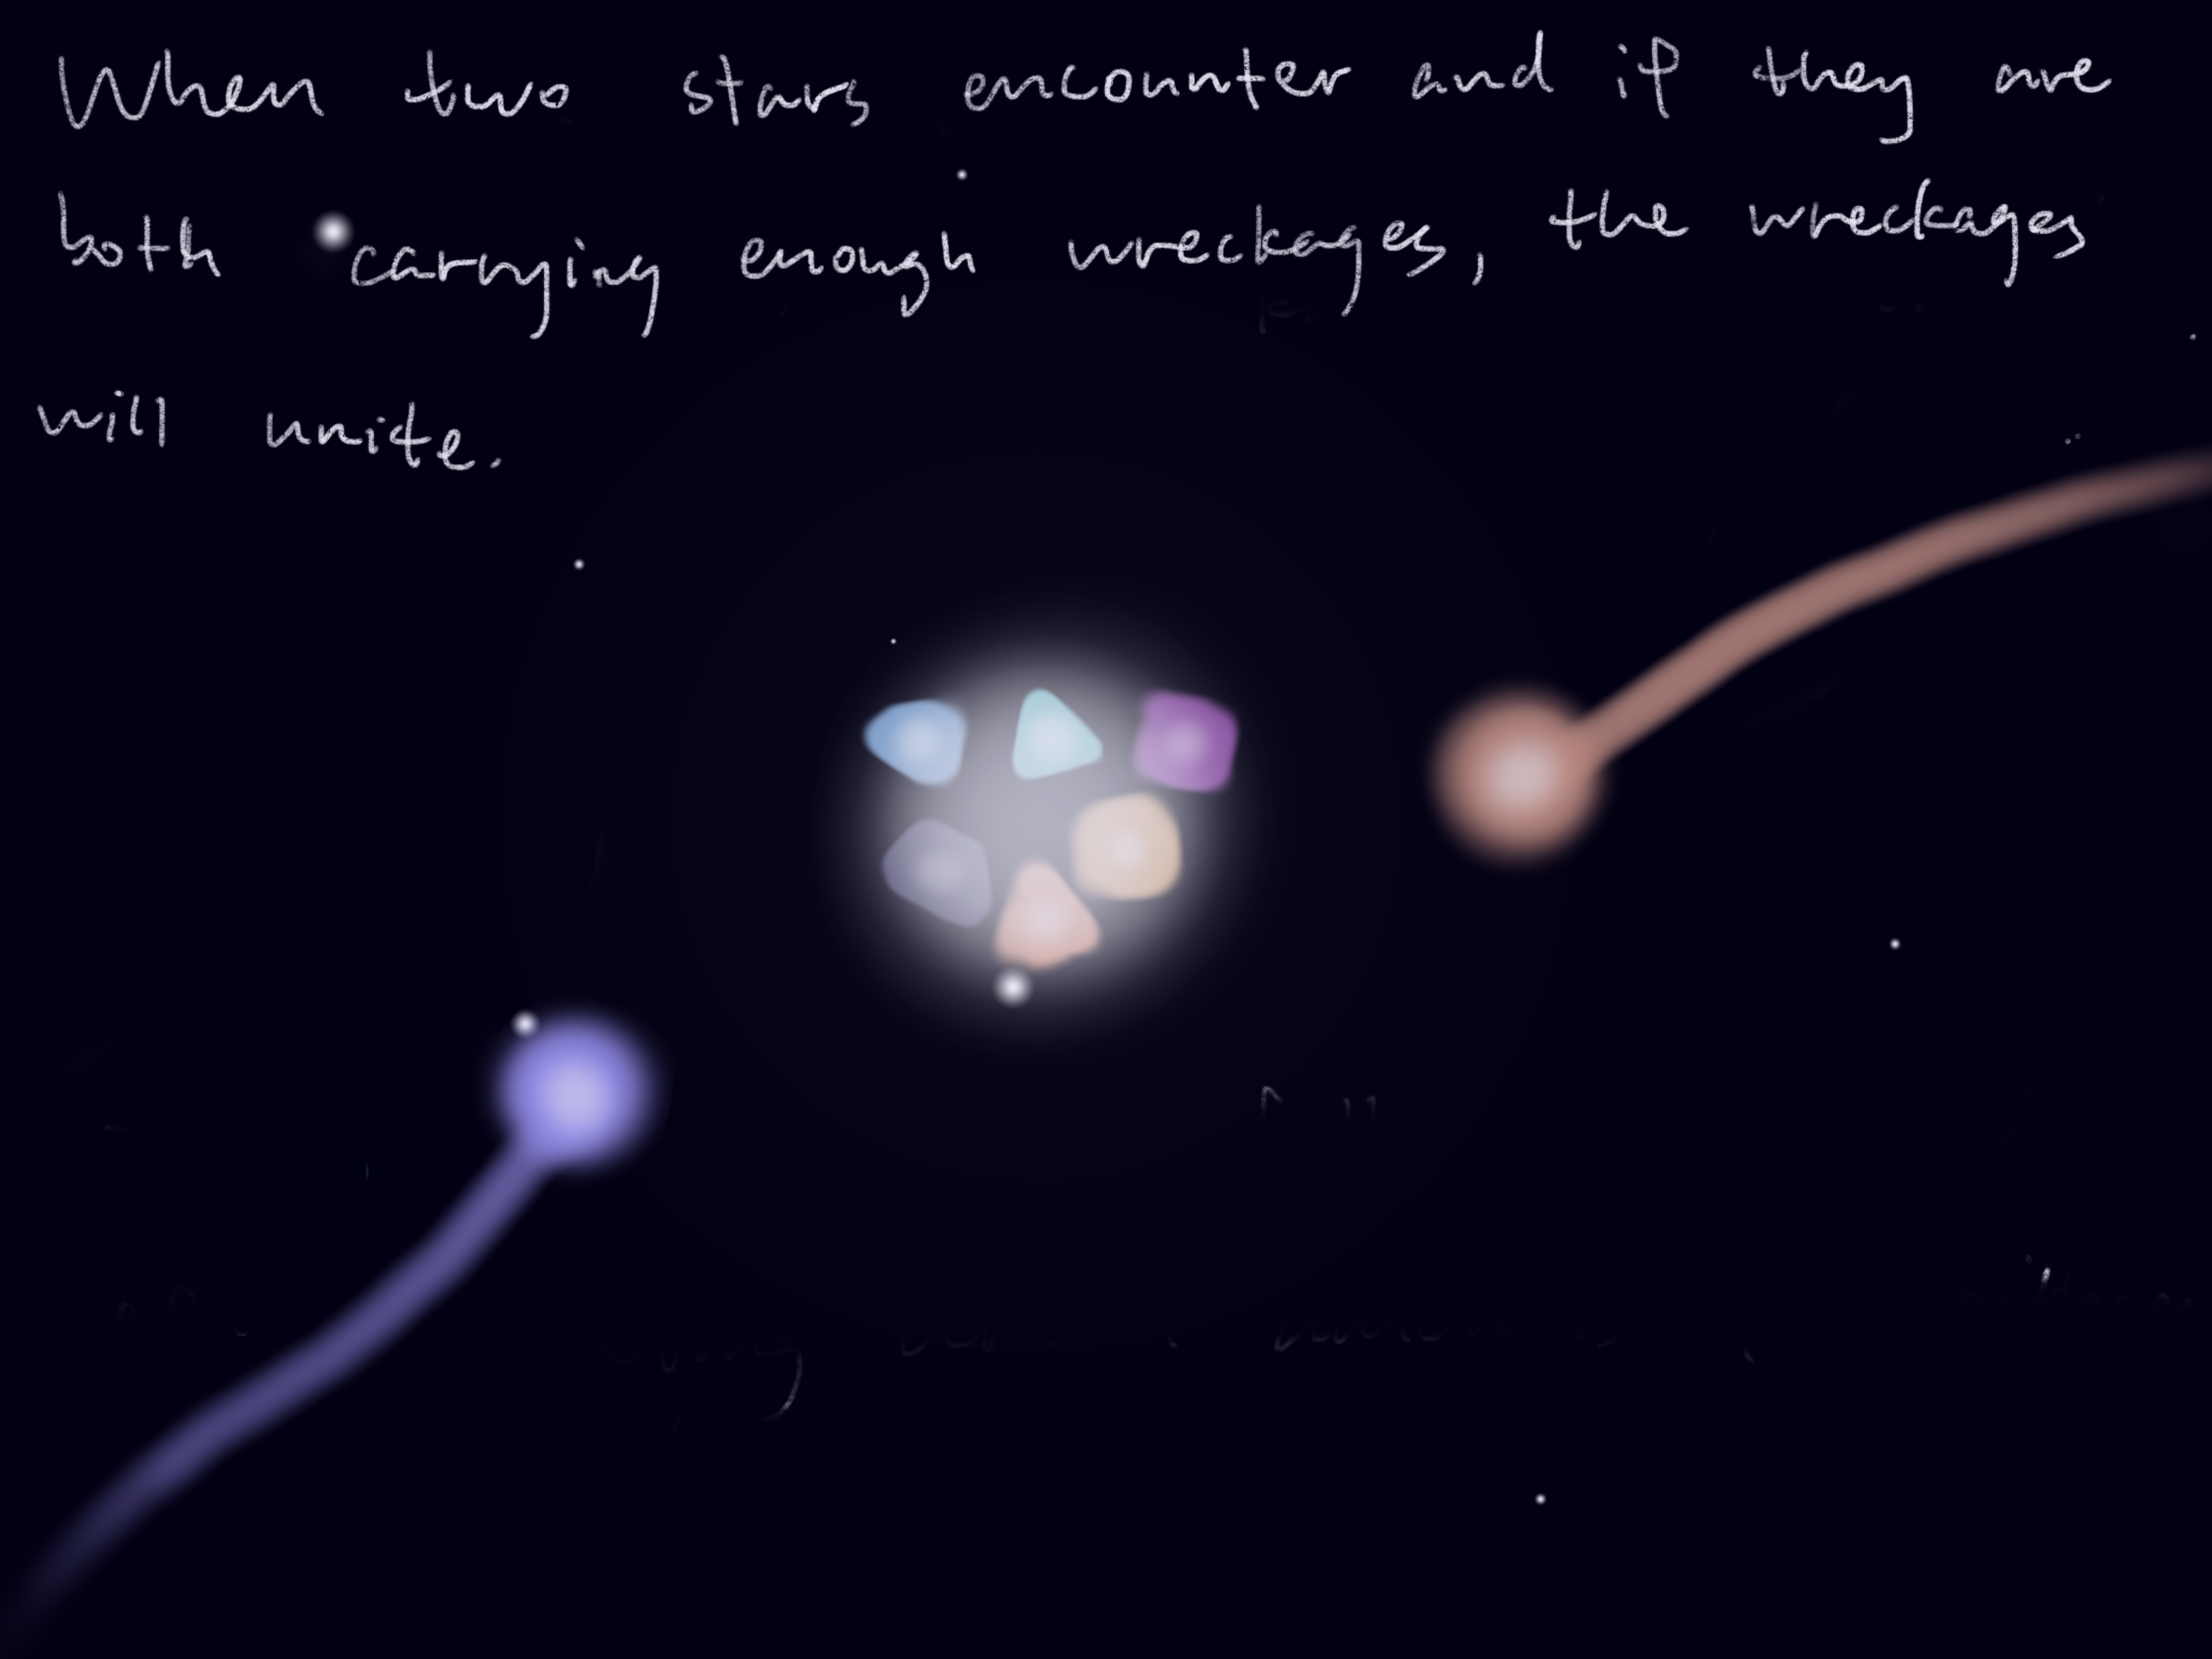 When two stars encounter and if they are
both carrying enough wreckages, the wreckages
will unite.